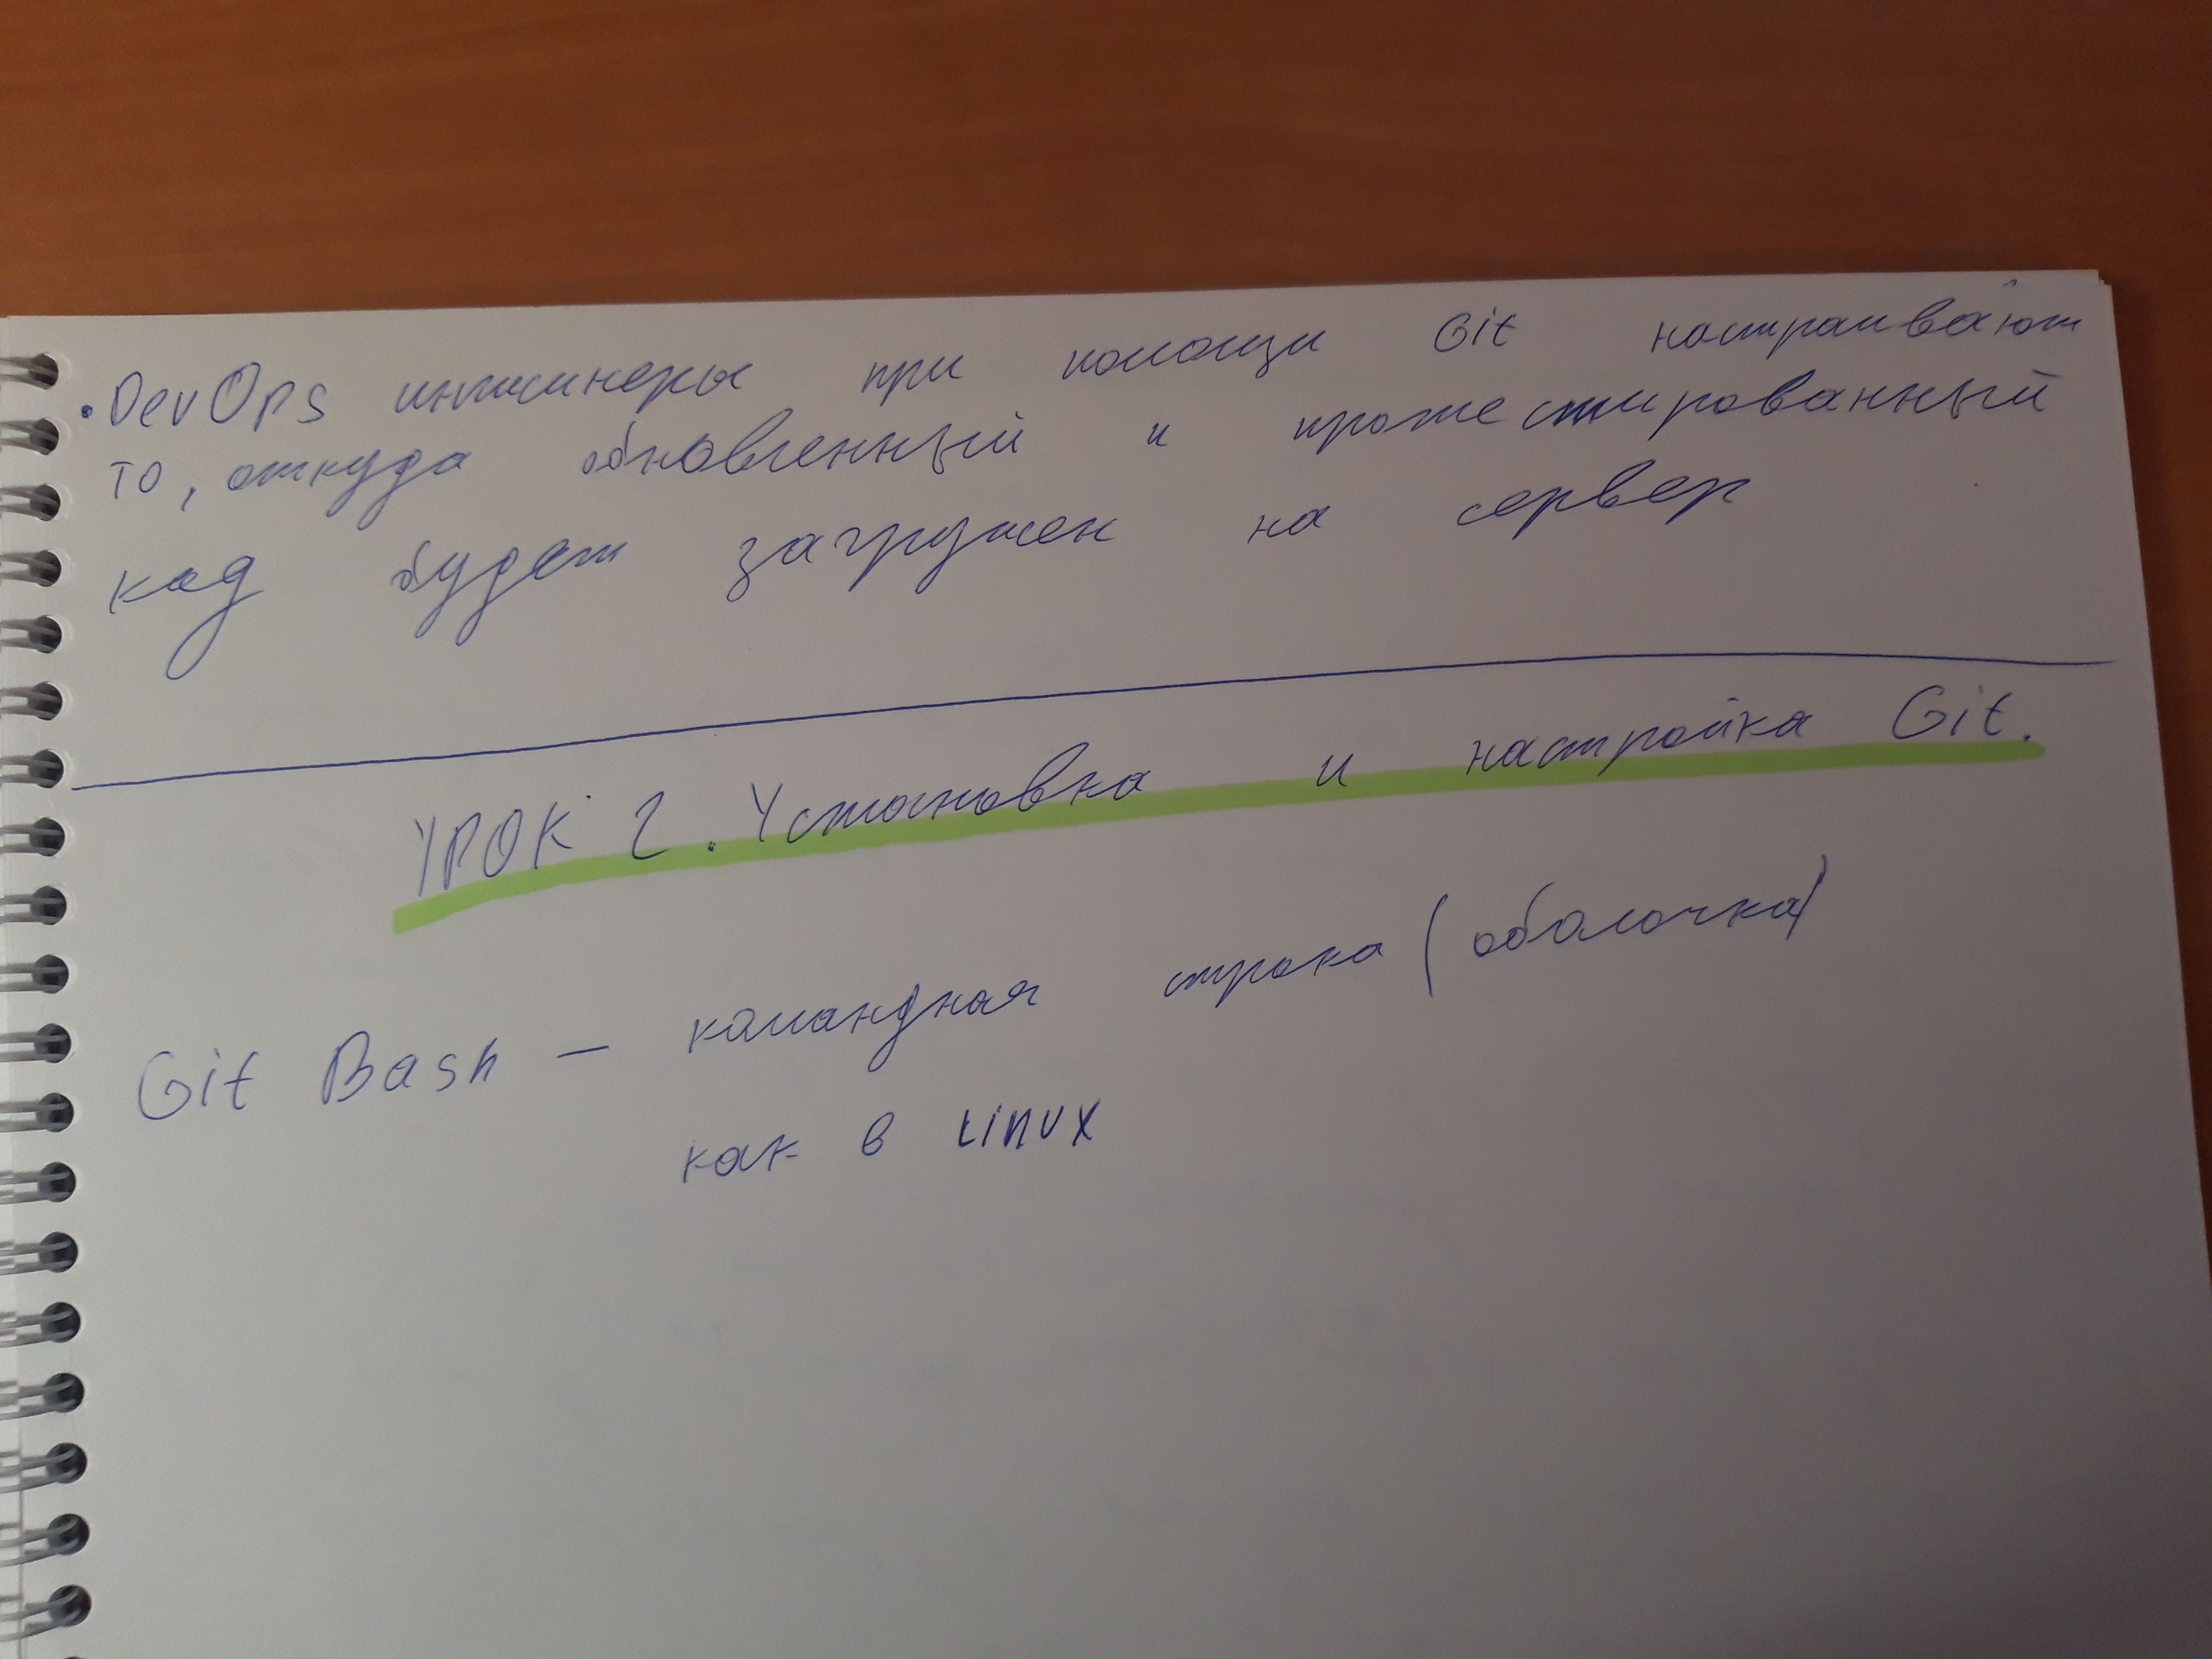 • DevOps инженеры при помощи Git настраивают
то, откуда обновленный и протестированный
код будет загружен на сервер
УРОК 2. Установка и настройка Git.
Git Bash — командная строка (оболочка)
как в Linux